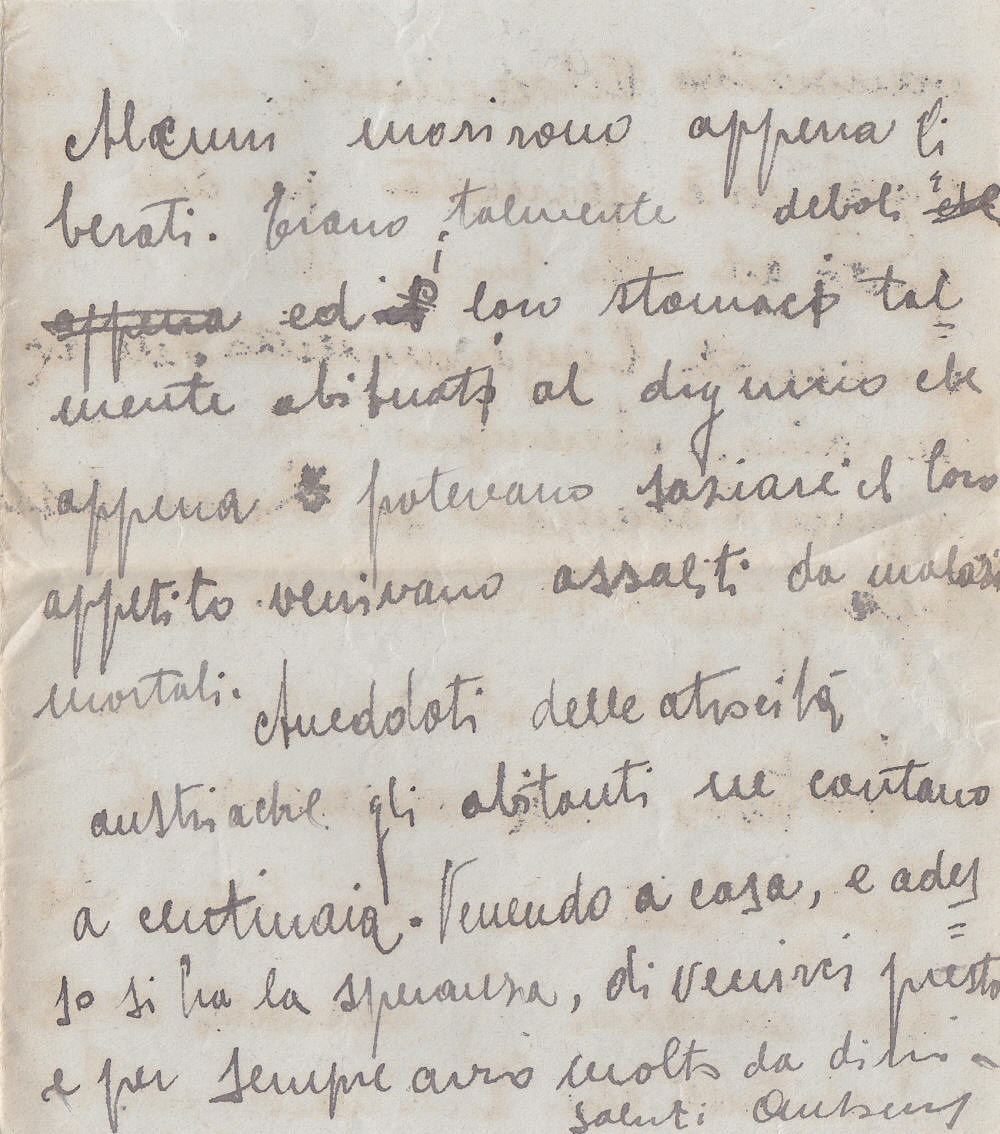 Alcuni morirono appena li
berati. Erano talmente deboli che
appena ed i loro stomaci tal=
mente abituati al digiunio che
appena potevano saziare il loro
appetito venivano assaliti da malazi
mortali. Aneddoti delle atrocità
austriache gli abitanti ne contano
a centinaia. Venendo a casa, e ades=
so si ha la speranza, di venirci presto
e per sempre avrò molto da dirvi
saluti